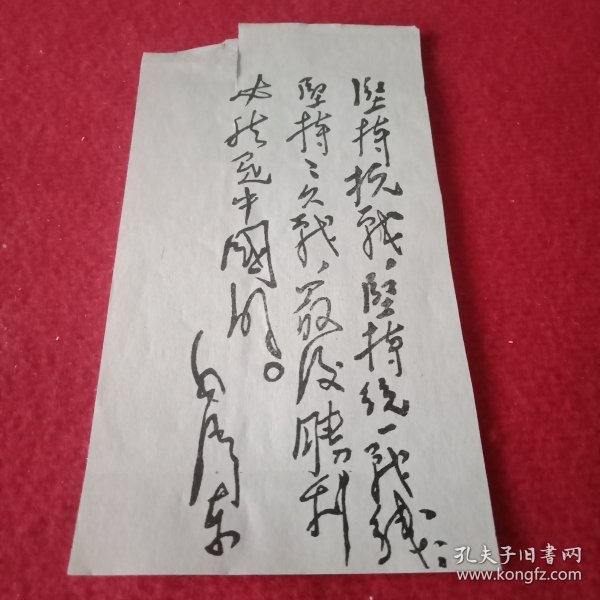 堅持抗戰，堅持統一戰線，
堅持持久戰，最後勝利
必然是中國的。
毛澤東
孔夫子旧書网
www.kongfz.com